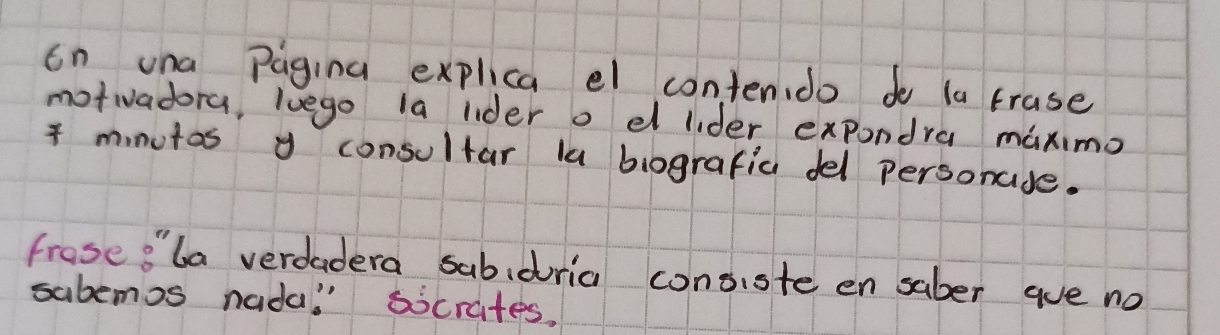 En una Página explica el contenido de la frase
motivadora, luego la lider o el lider expondra máximo
7 minutos y consultar la biografia del personaje.
frase: "La verdadera sabiduria consiste en saber que no
sabemos nada". Sócrates.